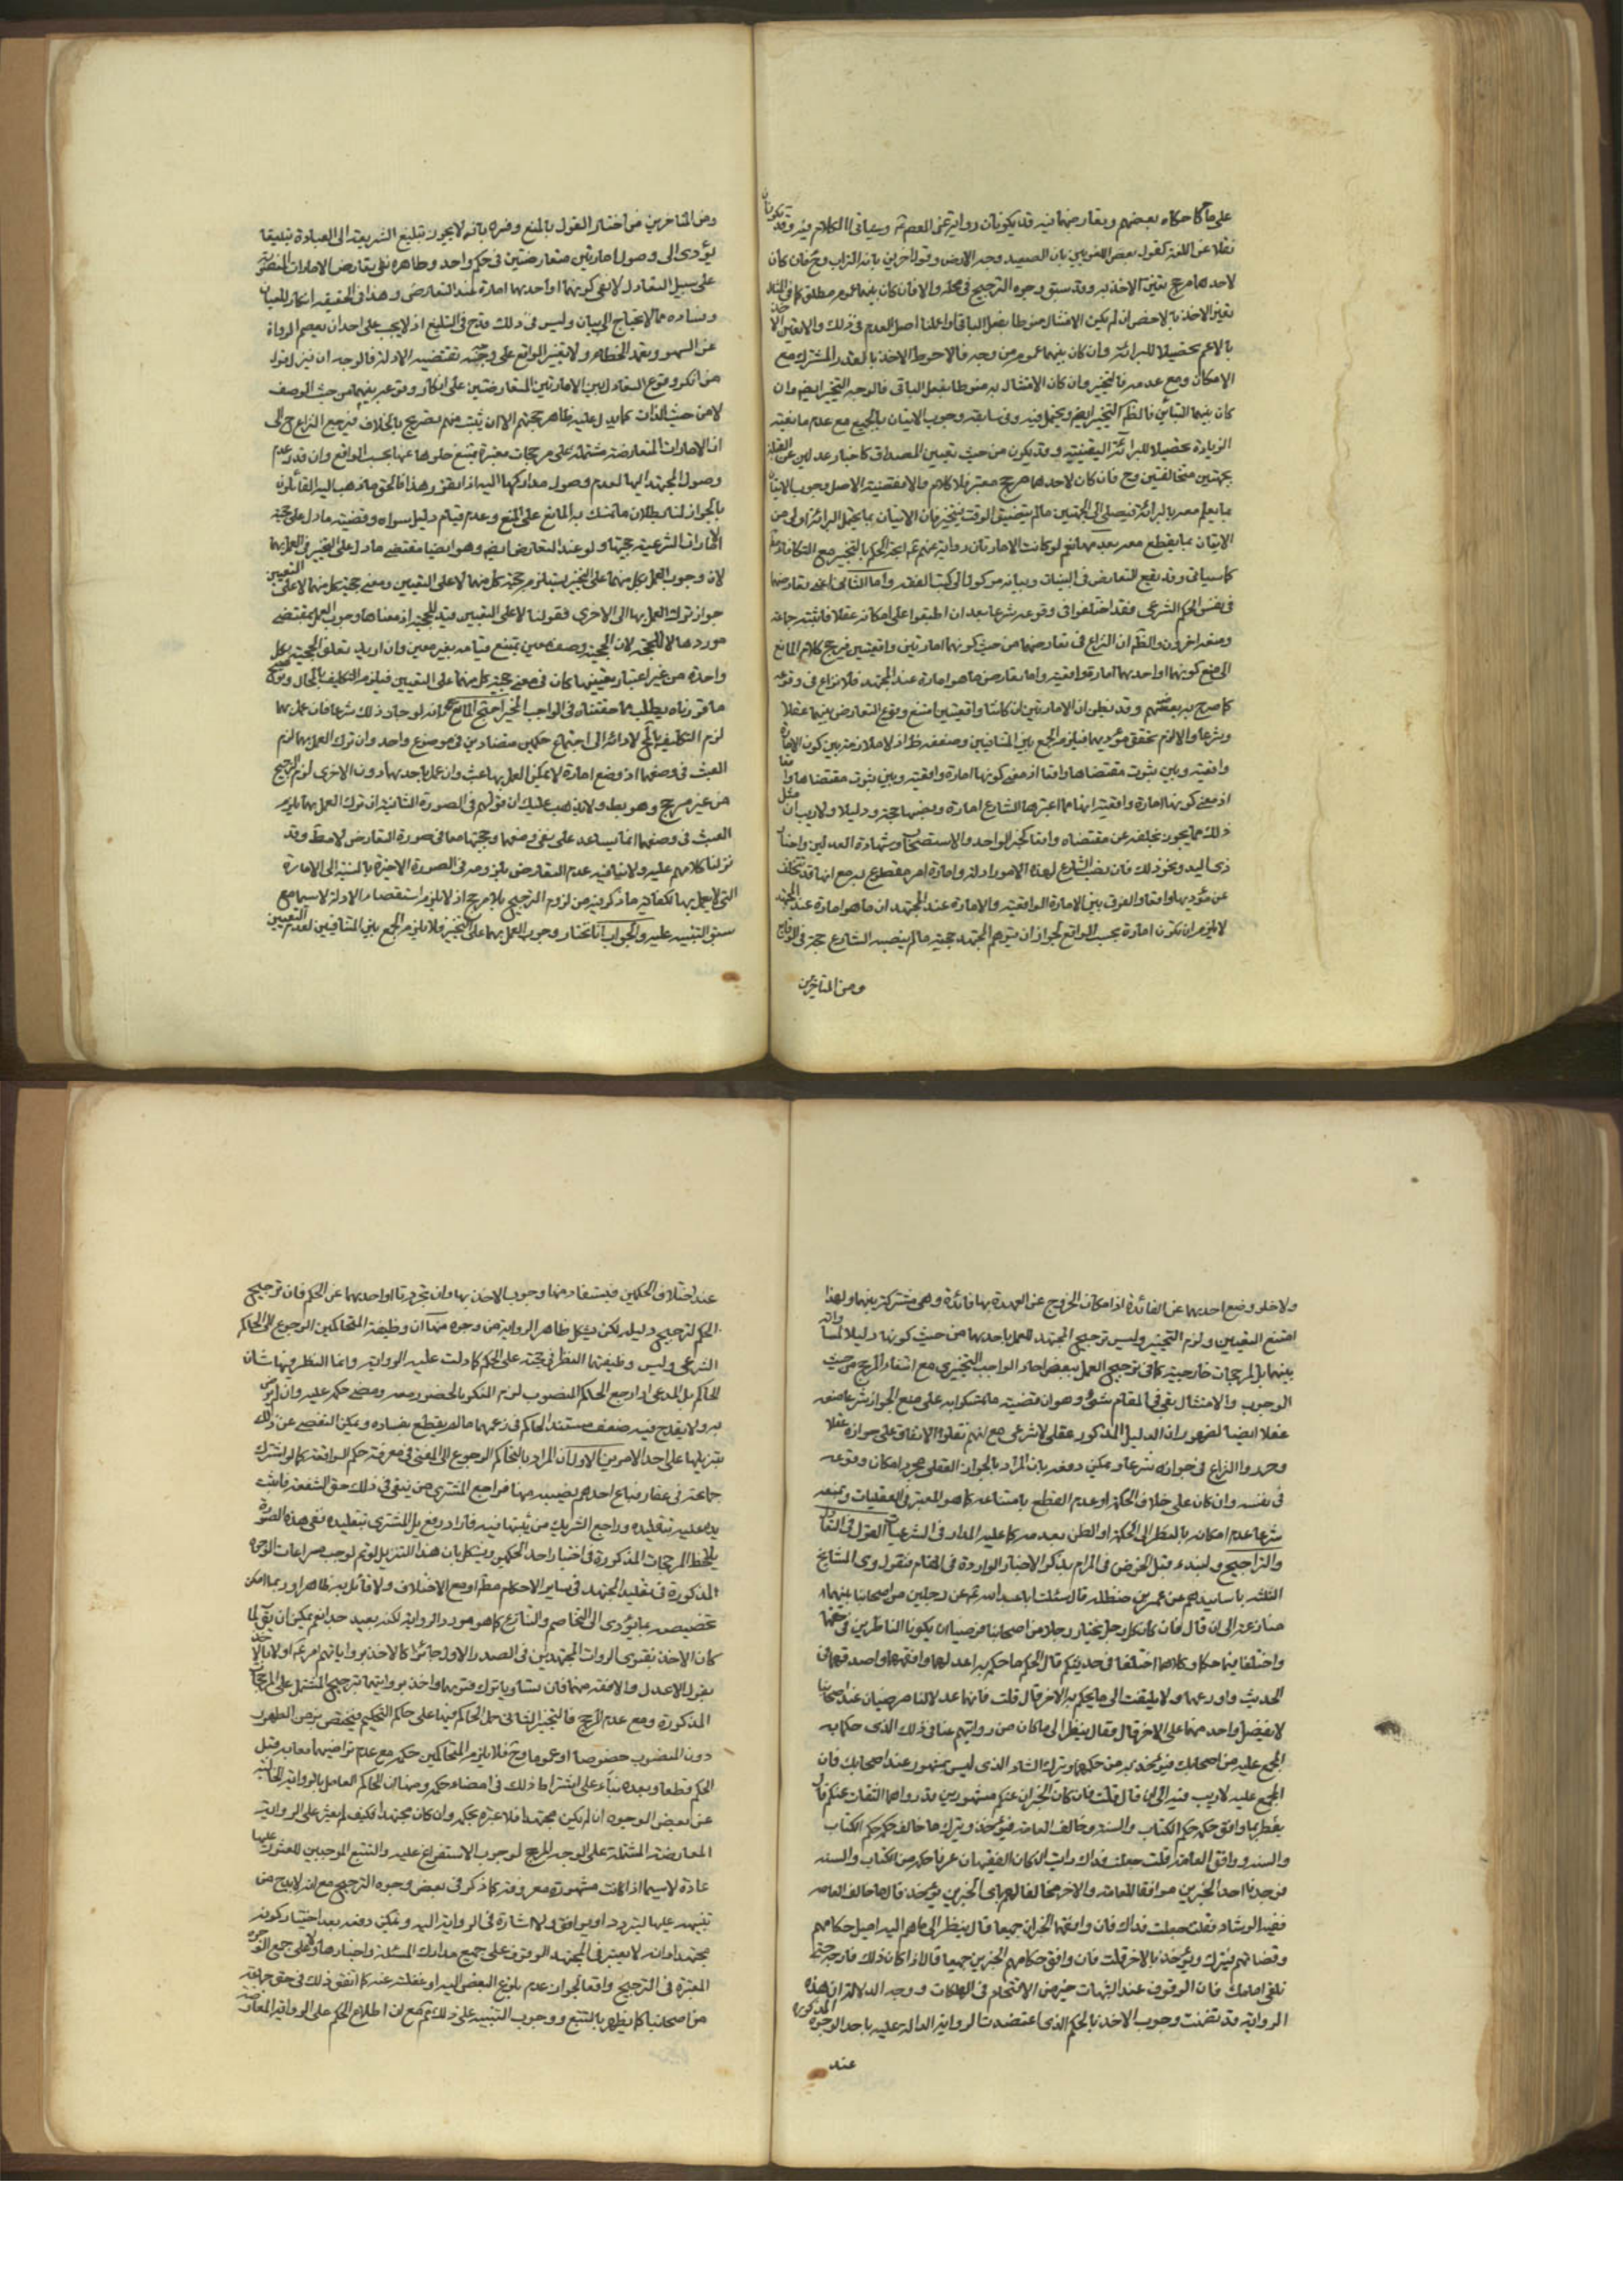 على ما حكاه بعضهم وتعارضهما فيه قد يكونان رواية عن المعصوم وسيأتي الكلام فيه وقد يكونان
نقلا عن اللغة كقول بعض اللغويين بان الصعيد وجه الارض وقول اخرين بانه التراب وح فان كان
لاحدهما مرجح تعين الاخذ به وقد سبق وجوه الترجيح في محله والا فان كان بينهما عموم مطلق كما في المثال
تعين الاخذ بالاخص ان لم يكن الامتثال منوطا بفعل الباقي واعملنا اصل العدم في ذلك والا تعين الاخذ
بالاعم تحصيلا للبرائة وان كان بينهما عموم من وجه فالاحوط الاخذ بالقدر المشترك مع
الامكان ومع عدمه فالتخيير وان كان الامتثال به منوطا بفعل الباقي فالوجه التخيير ايضا وان
كان بينهما التباين فالظ التخيير ايضا ويحتمل فيه وفي سابقه وجوب الاتيان بالجميع مع عدم مانعية
الزيادة تحصيلا للبرائة اليقينية وقد يكون من حيث تعيين المصداق كاخبار عدلين عن القبلة
بجهتين مختلفتين وح فان كان لاحدهما مرجح معتبر فلا كلام والا فقضية الاصل وجوب الاتيان
بما يعلم معه بالبرائة فيصلي الى الجهتين ما لم يتضيق الوقت فيتخير فان الاتيان بما يحتمل البرائة اولى من
الاتيان بما يقطع معه بعدمها نعم لو كانت الامارتان رواية عنهم ع اتجه الحكم بالتخيير مع التكافؤ
كما سياتي وقد يقع التعارض في البينات وبيانه موكول الى كتب الفقه واما الثاني اعني تعارضهما
في نفس الحكم الشرعي فقد اختلفوا في وقوعه شرعا بعد ان اطبقوا على امكانه عقلا فاثبته جماعة
ومنعه اخرون والظ ان النزاع في تعارضهما من حيث كونهما امارتين واقعيتين فيرجع كلام المانع
الى منع كونهما او احديهما امارة واقعية واما تعارض ما هو امارة عند المجتهد فلا نزاع في وقوعه
كما صرح به بعضهم وقد يظن ان الامارتين ان كانتا واقعيتين امتنع وقوع التعارض بينهما عقلا
وشرعا والا لزم تحقق مؤديهما فيلزم الجمع بين المتنافيين وضعفه ظ اذ لا ملازمة بين كون الامارة
واقعية وبين ثبوت مقتضاها واقعا اذ معنى كونها امارة واقعية وبين ثبوت مقتضاها واقعا
اذ معنى كونها امارة واقعية انها مما اعتبرها الشارع امارة ونصبها حجة ودليلا ولا ريب ان مثل
ذلك مما يجوز تخلفه عن مقتضاه واقعا كخبر الواحد والاستصحاب وشهادة العدلين واخبار
ذي اليد ونحو ذلك فان نصب الشارع لهذه الامور ادلة وامارة امر مقطوع به مع انها قد تتخلف
عن مؤديها واقعا والفرق بين الامارة الواقعية والامارة عند المجتهد ان ما هو امارة عند المجتهد
لا يلزم ان تكون امارة بحسب الواقع لجواز ان يتوهم المجتهد حجية ما لم ينصبه الشارع حجة في الواقع
ومن المتاخرين
ومن المتاخرين من اختار القول بالمنع وفسره بانه لا يجوز تبليغ الشريعة الى العباد تبليغا
يؤدي الى وصول امارتين متعارضتين في حكم واحد وظاهره نفي تعارض الامارات المنصوبة
على سبيل التعادل لا نفي كونهما او احديهما امارة عند التعارض وهذا في الحقيقة انكار للعيان
وفساده مما لا يحتاج الى بيان وليس في ذلك قدح في التبليغ اذ لا يجب على احد ان يعصم الرواة
عن السهو وتعمد الخطاء ولا تغيير الواقع على وجه تقتضيه الادلة فالوجه ان ينزل قول
من انكر وقوع التعادل بين الامارتين المتعارضتين على انكار وقوعه بينهما من حيث الوصف
لا من حيث الذات كما يدل عليه ظاهر حجتهم الا ان يثبت منهم تصريح بالخلاف فيرجع النزاع ح الى
ان الامارات المتعارضة مشتملة على مرجحات معتبرة يمتنع خلوها عنها بحسب الواقع وان قدر عدم
وصول المجتهد اليها لعدم وصول مداركها اليه اذا تقرر هذا فالحق ما ذهب اليه القائلون
بالجواز لنا بطلان ما تمسك به المانع على المنع وعدم قيام دليل سواه وقضية ما دل على حجية
الامارات الشرعية حجيتها ولو عند التعارض ايضا وهو ايضا مقتضى ما دل على التخيير في العمل بهما
لان وجوب العمل بكل منهما على التخيير يستلزم حجية كل منهما لا على التعيين ومعنى حجية كل منهما لا على التعيين
جواز ترك العمل بها الى الاخرى فقولنا لا على التعيين قيد للحجية اذ معناها وجوب العمل بمقتضى
موردها لا للحجة لان الحجية وصف معين يمتنع قيامه بغير معين وان اريد تعلق الحجية بكل
واحدة من غير اعتبار تعيينها كان في معنى حجية كل منهما على التعيين فيلزم التكليف بالمحال وتوضيح
ما قررناه يطلب مما حققناه في الواجب المخير احتج المانع بانه لو جاز ذلك شرعا فان عمل بهما
لزم التكليف بالمحال لادائه الى اجتماع حكمين متضادين في موضوع واحد وان ترك العمل بهما لزم
العبث في وضعهما اذ وضع امارة لا يمكن العمل بها عبث وان عمل باحديهما دون الاخرى لزم الترجيح
من غير مرجح وهو بط ولا يذهب عليك ان قولهم في الصورة الثانية ان ترك العمل بهما يلزم
العبث في وضعهما انما يساعد على نفي وضعهما وحجيتهما معا في صورة التعارض لا مط وقد
نزلنا كلامهم عليه ولا ينافيه عدم التعارض بلزومه في الصورة الاخيرة بالنسبة الى الامارة
التي لا يعمل بها لكفاية ما ذكروه من لزوم الترجيح بلا مرجح اذ لا يلزم استقصاء الادلة لا سيما مع
سبق التنبيه عليه والجواب انا نختار وجوب العمل بهما على التخيير فلا يلزم الجمع بين المتنافيين لعدم التعيين
ولا خلو وضع احديهما عن الفائدة اذ امكان الخروج عن العهدة بها فائدة وهي مشتركة بينهما ولهذا
امتنع التعيين ولزم التخيير وليس ترجيح المجتهد للعمل باحديهما من حيث كونها دليلا لمساواته
بينهما بل لمرجحات خارجية كما في ترجيح العمل ببعض احاد الواجب التخييري مع انتفاء المرجح من حيث
الوجوب والامتثال بقي في المقام شئ وهو ان قضية ما تمسكوا به على منع الجواز شرعا منعه
عقلا ايضا لظهور ان الدليل المذكور عقلي لا شرعي مع انهم نقلوا الاتفاق على جوازه عقلا
وحرروا النزاع في جوازه شرعا ويمكن دفعه بان المراد بالجواز العقلي مجرد امكان وقوعه
في نفسه وان كان على خلاف الحكمة او عدم القطع بامتناعه كما هو المعتبر في العقليات وبمنعه
شرعا عدم امكانه بالنظر الى الحكمة او الظن بعدمه كما عليه المدار في الشرعيات القول في التعادل
والتراجيح ولنبدء قبل الخوض في المرام بذكر الاخبار الواردة في المقام فنقول روى المشايخ
الثلثة باسانيدهم عن عمر بن حنظلة قال سئلت ابا عبد الله ع عن رجلين من اصحابنا بينهما
منازعة الى ان قال فان كان كل رجل يختار رجلا من اصحابنا فرضيا ان يكونا الناظرين في حقهما
واختلفا فيما حكما وكلاهما اختلفا في حديثكم قال الحكم ما حكم به اعدلهما وافقههما واصدقهما في
الحديث واورعهما ولا يلتفت الى ما يحكم به الاخر قال قلت فانهما عدلان مرضيان عند اصحابنا
لا يفضل واحد منهما على الاخر قال فقال ينظر الى ما كان من روايتهم عنا في ذلك الذي حكما به
المجمع عليه من اصحابك فيؤخذ به من حكمهما ويترك الشاذ الذي ليس بمشهور عند اصحابك فان
المجمع عليه لا ريب فيه الى ان قال قلت فان كان الخبران عنكم مشهورين قد رواهما الثقات عنكم قال
ينظر فما وافق حكمه حكم الكتاب والسنة وخالف العامة فيؤخذ ويترك ما خالف حكمه حكم الكتاب
والسنة ووافق العامة قلت جعلت فداك رايت ان كان الفقيهان عرفا حكمه من الكتاب والسنة
فوجدنا احد الخبرين موافقا للعامة والاخر مخالفا لهم باي الخبرين يؤخذ قال ما خالف العامة
ففيه الرشاد فقلت جعلت فداك فان وافقهما الخبران جميعا قال ينظر الى ما هم اليه اميل حكامهم
وقضاتهم فيترك ويؤخذ بالاخر قلت فان وافق حكامهم الخبرين جميعا قال اذا كان ذلك فارجه حتى
تلقى امامك فان الوقوف عند الشبهات خير من الاقتحام في الهلكات ووجه الدلالة ان هذه
الرواية قد تضمنت وجوب الاخذ بالحكم الذي اعتضدت الرواية الدالة عليه باحد الوجوه المذكورة
عند
عند اختلاف الحكمين فيستفاد منها وجوب الاخذ بها وان تجردتا او احديهما عن الحكم فان ترجيح
الحكم لترجيح دليله لكن يشكل ظاهر الرواية من وجوه منها ان وظيفة المتحاكمين الرجوع الى الحاكم
الشرعي وليس وظيفتهما النظر في حجته على الحكم كما دلت عليه الرواية وانما النظر فيها شان
الحاكم بل المدعى اذا رجع الى الحاكم المنصوب لزم المنكر بالحضور معه ومضى حكمه عليه وان لم يرض
به ولا يقدح فيه ضعف مستند الحاكم في زعمهما ما لم يقطع بفساده ويمكن التفصي عن ذلك
بتنزيلها على احد الامرين الاول ان المراد بالتحاكم الرجوع الى المفتي في معرفة حكم الواقعة كما لو اشترك
جماعة في عقار فباع احدهم نصيبه منها فراجع المشتري من ينفي في ذلك حق الشفعة فاثبت
يده عليه بتقليده وراجع الشريك من يثبتها فيه فاراد رفع يد المشتري بتقليده ففي هذه الصورة
يلاحظ المرجحات المذكورة في اختيار احد الحكمين ويشكل بان هذا التنزيل لو تم لوجب مراعات الوجوه
المذكورة في تقليد المجتهد في ساير الاحكام مط او مع الاختلاف ولا قائل به ظاهرا وربما امكن
تخصيصه بما يؤدي الى التخاصم والتنازع كما هو مورد الرواية لكنه بعيد جدا نعم يمكن ان يق لما
كان الاخذ بفتوى الروات المجتهدين في الصدر الاول جائزا كالاخذ برواياتهم امر ع اولا بالاخذ
بقول الاعدل والافقه منهما فان تساويا ترك فتويهما واخذ بروايتهما بترجيح المشتمل على المرجحات
المذكورة ومع عدم المرجح فالتخيير الثاني حمل الحاكم فيها على حاكم التحكيم فيختص بزمن الظهور
دون المنصوب خصوصا او عموما وح فلا يلزم المتحاكمين حكمه مع عدم تراضيهما معا به قبل
الحكم قطعا وبعده بناء على اشتراط ذلك في امضاء حكمه ومنها ان الحاكم العامل بالرواية الخالية
عن بعض الوجوه ان لم يكن مجتهدا فلا عبرة بحكمه وان كان مجتهدا فكيف لم يعثر على الرواية
المعارضة المشتملة على الوجه المرجح لوجوب الاستفراغ عليه والتتبع الموجبين للعثور عليها
عادة لا سيما اذا كانت مشهورة معروفة كما ذكر في بعض وجوه الترجيح مع انه لا بد ح من
تنبيهه عليها ليتردد او يوافق ولا اشارة في الرواية اليه ويمكن دفعه بعد اختيار كونه
مجتهدا وانه لا يعتبر في المجتهد الوقوف على جميع مدارك المسئلة واخبارها ولا على جميع الوجوه
المعتبرة في الترجيح واقعا لجواز عدم بلوغ البعض اليه او غفلته عنه كما اتفق ذلك في حق جماعة
من اصحابنا كما يظهر بالتتبع ووجوب التنبيه على ذلك ثم مع ان اطلاع الحاكم على الرواية المعارضة